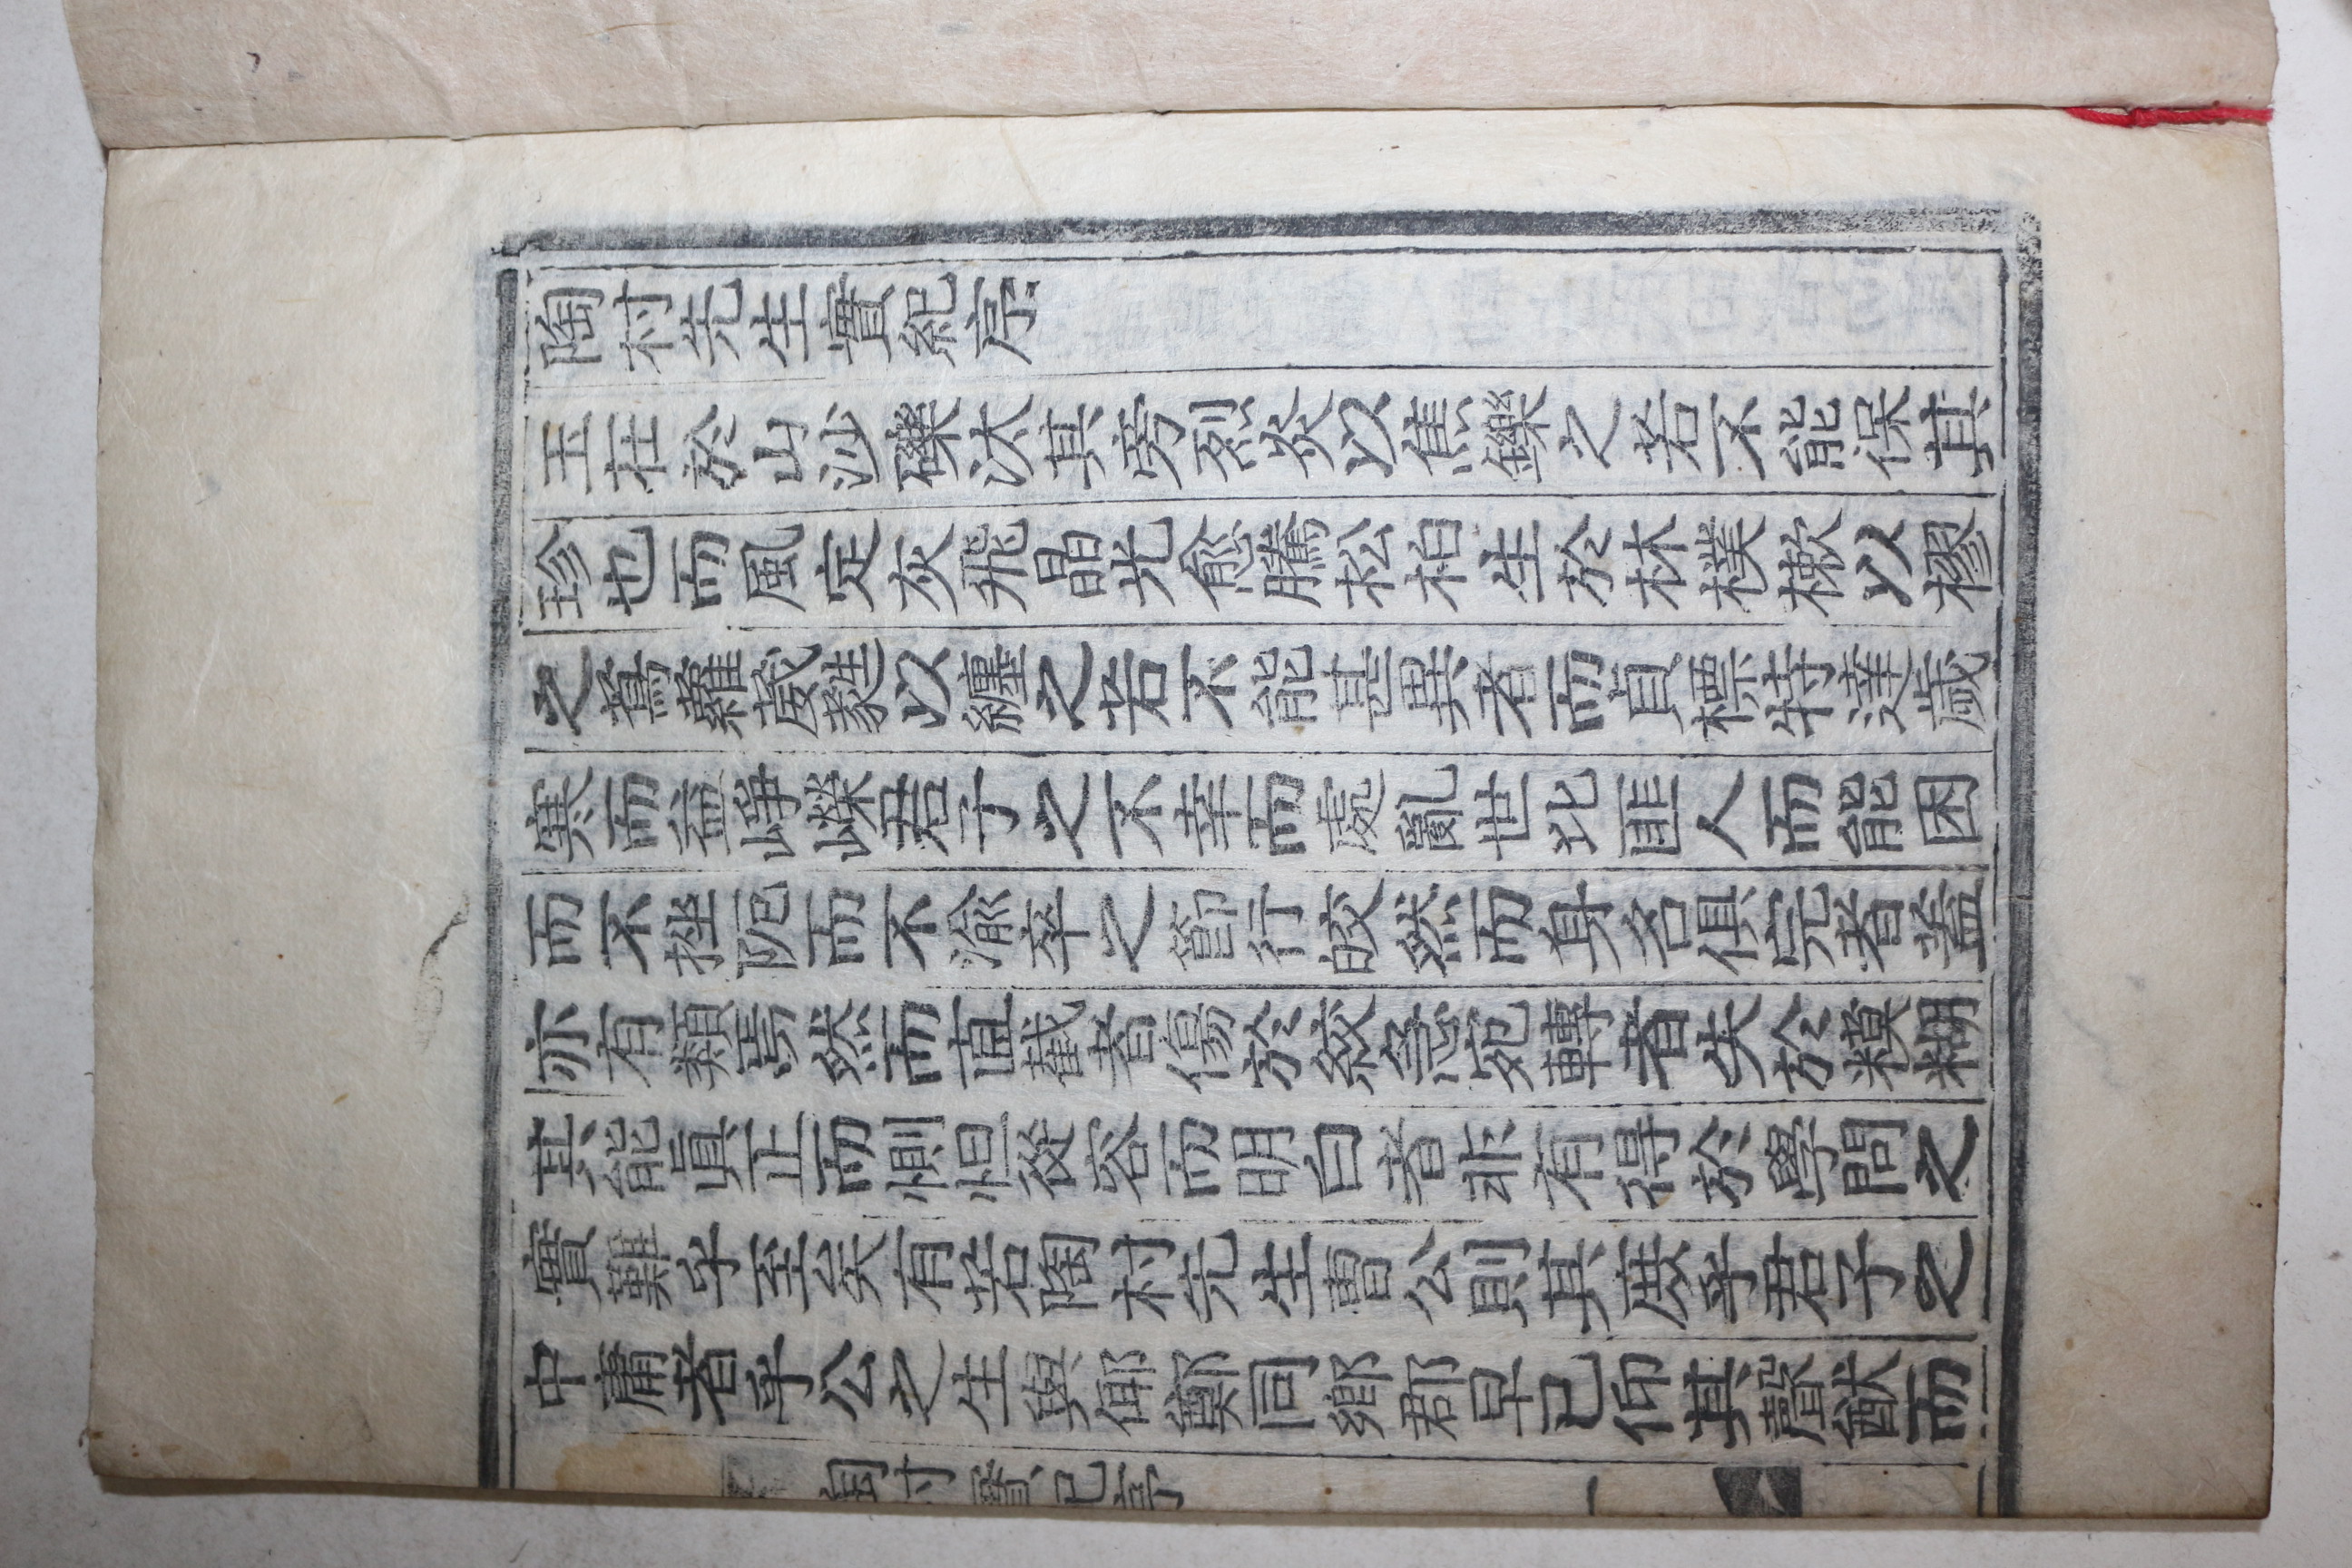 陶村先生實紀序
玉在於山沙礫汰其旁烈炎以焦鑠之若不能保其
珍也而風定灰飛晶光愈騰松柏生於林樸樕以樛
之蔦蘿葳蕤以纏之若不能甚異者而貞標特達歲
寒而益崢嶸君子之不幸而處亂世比匪人而能困
而不挫阨而不渝卒之節行皎然而身名俱完者蓋
亦有類焉然而直截者傷於絞急宛轉者失於糢糊
其能眞正而惻怛從容而明白者非有得於學問之
實難乎至矣有若陶村先生曺公則其庶乎君子之
中庸者乎公之生與倻鄭同鄕郡早已仰其聲猷而
陶村實紀序
一